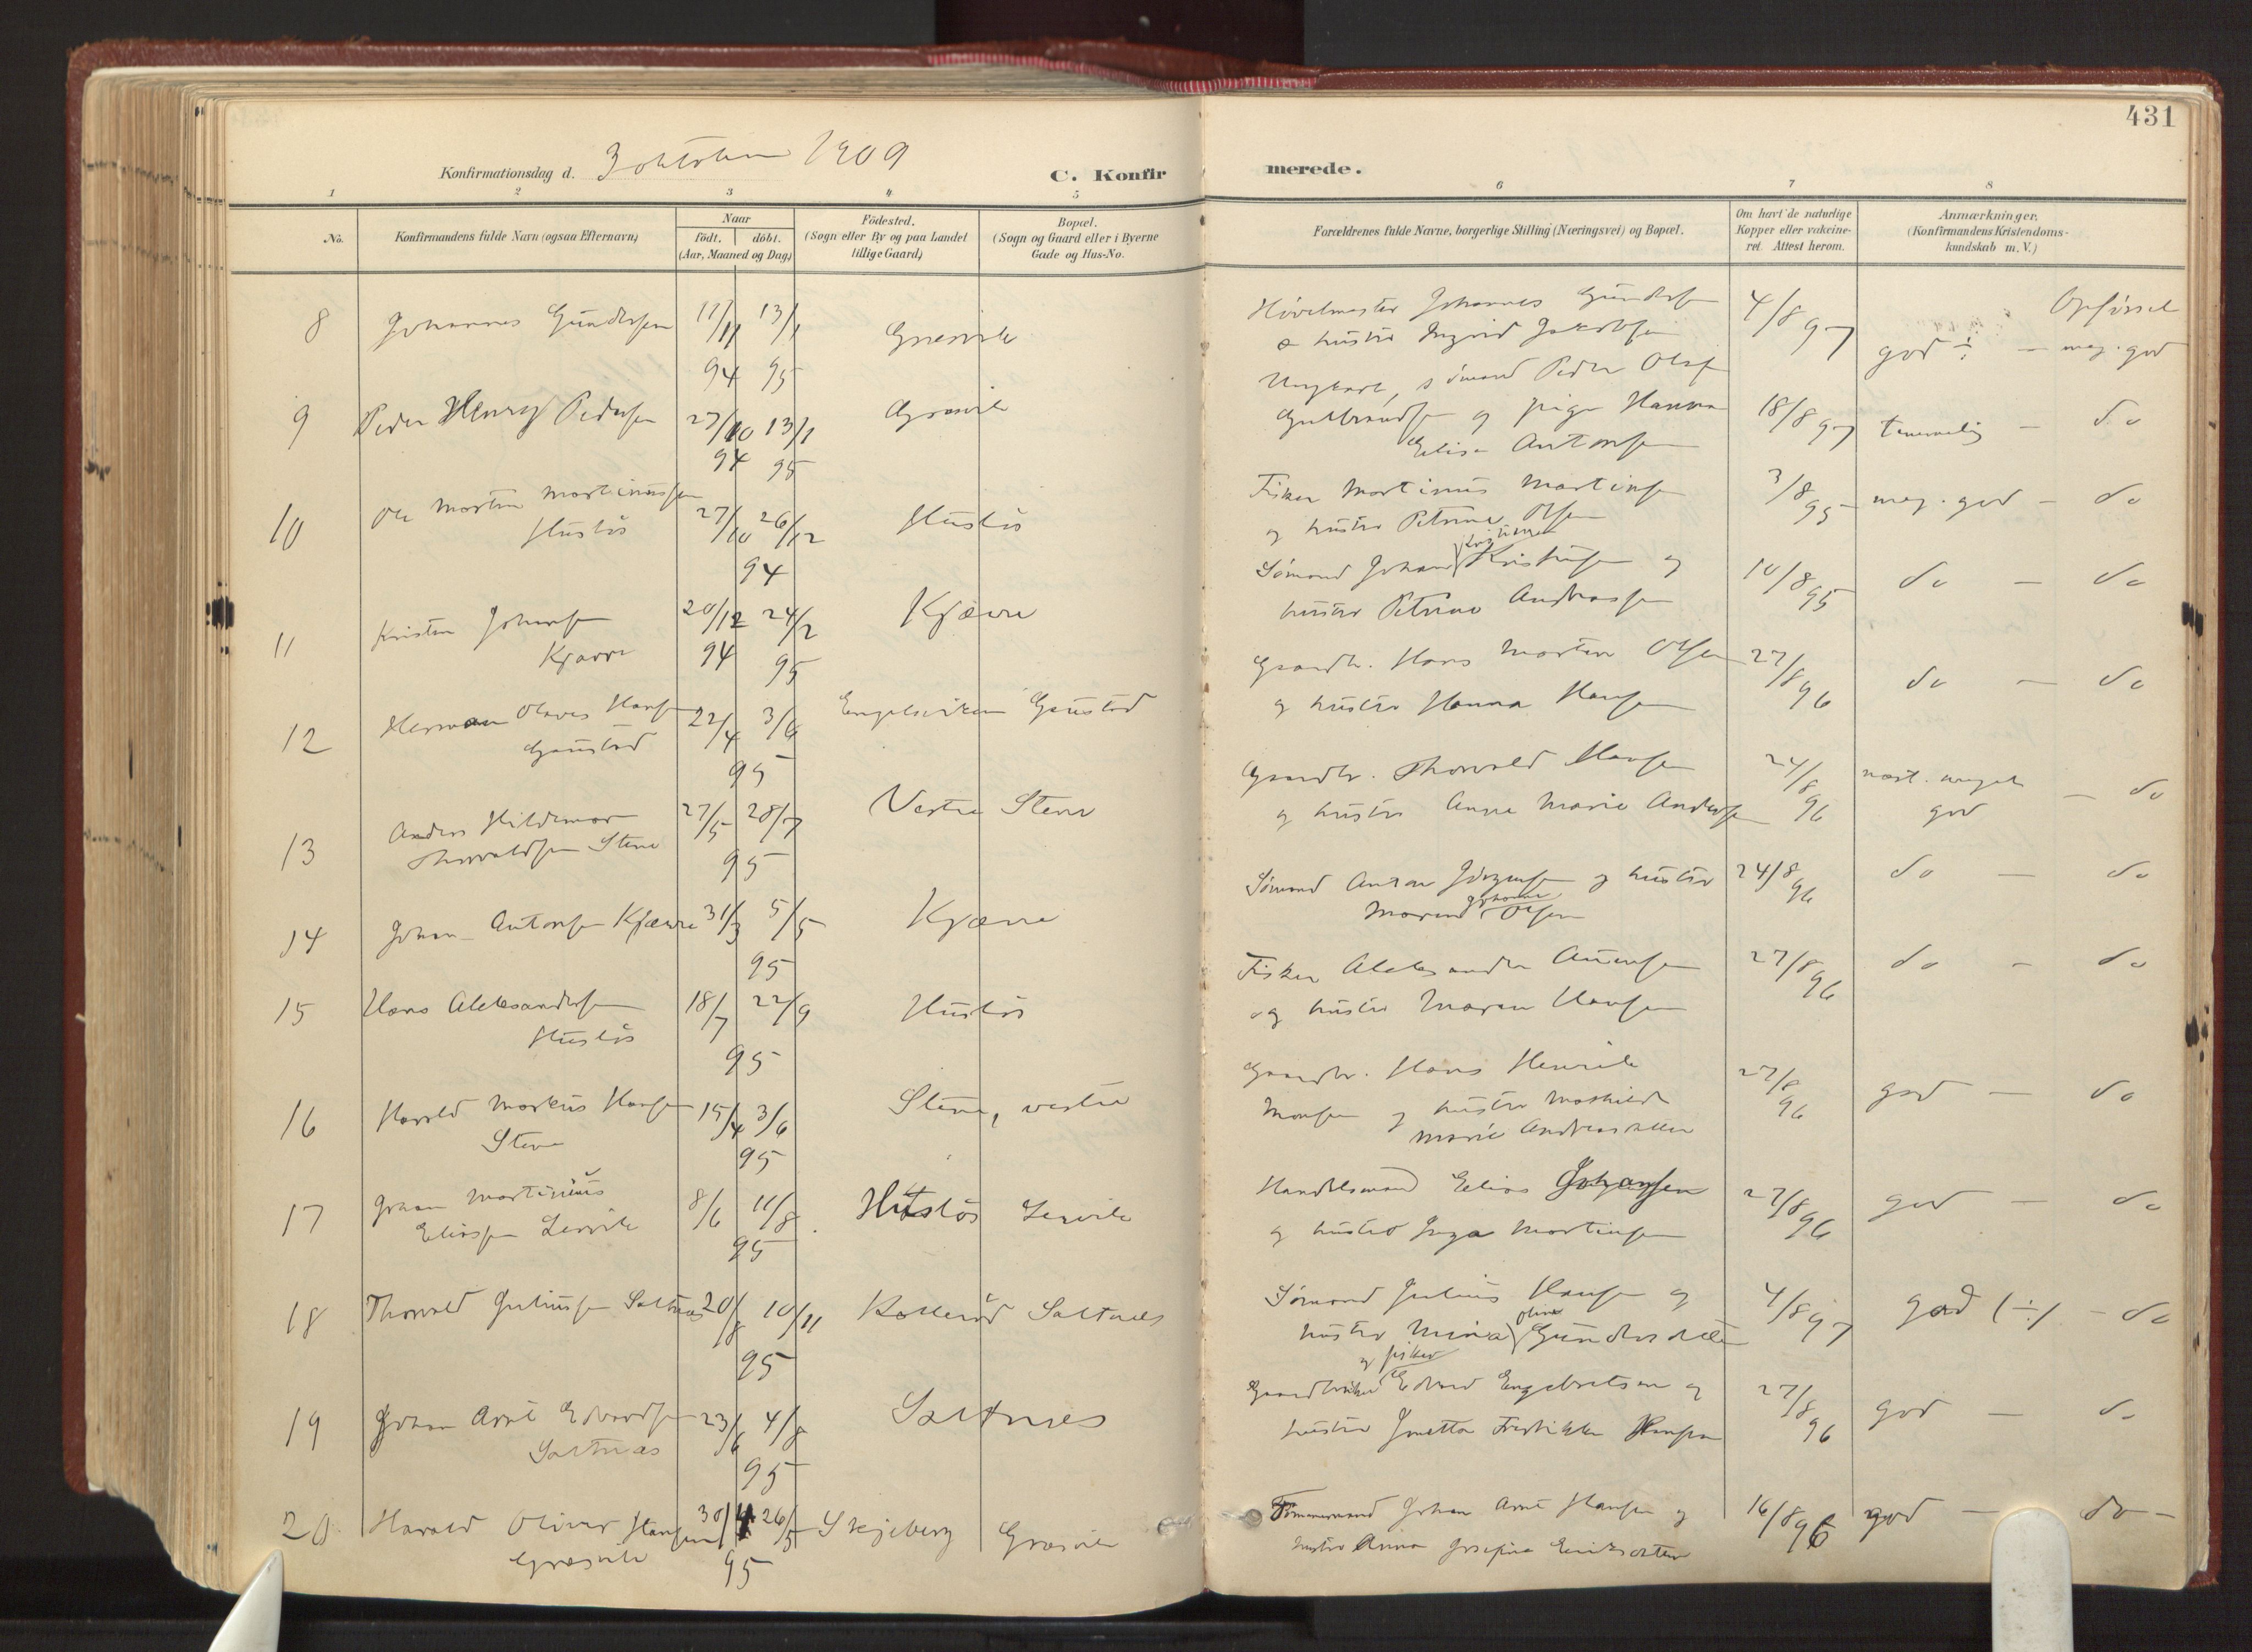 431
Konfirmationsdag d. 3 oktober 1909
C. Konfir
merede.
1 2 3 4 5 6 7 8
No.
Konfirmandens fulde Navn (ogsaa Efternavn)
Naar
födt. döbt.
(Aar, Maaned og Dag)
Födested.
(Sogn eller By og paa Landet
tillige Gaard)
Bopæl.
(Sogn og Gaard eller i Byerne
Gade og Hus-No.
Forældrenes fulde Navne, borgerlige Stilling (Næringsvei) og Bopæl.
Om havt de naturlige
Kopper eller vakcine-
ret. Attest herom.
Anmærkninger.
(Konfirmandens Kristendoms-
kundskab m. V.)
8 Johannes Gundersen 11/11 94 13/1 95 Græsvik
Høvelmester Johannes Gundersen
& hustru Ingrid Jakobsen
4/8 97
Opførsel
god ÷ — meg. god
9 Peder Henry Pedersen 27/10 94 13/1 95 Græsvik
Ungkarl, sømand Peder Olaf
Gulbrandsen og pige Hanna
Elise Antonsen
18/8 97 temmelig — do
10 Ole Morten Martinussen
Husløs
27/10 26/12 94 Husløs
Fisker Martinus Martinsen
og hustru Petrine Olsen
3/8 95 meg. god — do
11 Kristen Johansen
Kjærre
20/12 94 24/2 95 Kjærre
Sømand Johan Kristensen og
hustru Petrine Andreassen
10/8 95 do — do
12 Herman Olaves Hansen
Gaustad
22/4 3/6 95 Engelsviken Gaustad
Gaardbr. Hans Morten Olsen
og hustru Hanna Hansen
27/8 96 do — do
13 Anders Hildemar
Thorvaldsen Stene
27/5 28/7 95 Vestre Stene
Gaardbr. Thorvald Hansen
og hustru Anna Marie Andersen
24/8 96 næst. meget
god — do
14 Johan Antonsen Kjærre 31/3 5/5 95 Kjærre
Sømand Anton Jörgensen og hustru
Maren Johanne Olsen
24/8 96 do — do
15 Hans Aleksandersen
Husløs
18/7 22/9 95 Husløs
Fisker Aleksander Amensen
og hustru Maren Hansen
27/8 96 do — do
16 Harald Markus Hansen
Stene
15/4 3/6 95 Stene, vestre
Gaardbr. Hans Henrik
Monsen og hustru Mathilde
Marie Andreasdatter
27/8 96 god — do
17 Johan Martinius
Eliassen Lervik
8/6 11/8 95 Husløs Lervik
Handelsmand Elias Johansen
og hustru Inga Martinsen
27/8 96 god — do
18 Thorvald Juliussen Saltnæs 20/8 10/11 95 Kollerød Saltnæs
Sømand Julius Hansen og
hustru Mina Oline Gundersdatter
4/8 97 god (÷) — do
19 Johan Arnt Edvardsen
Saltnæs
23/6 4/8 95 Saltnæs
og fisker
Gaardbruker Edvard Engebretsen og
hustru Jonetta Fredrikke Hansen
27/8 96 god — do
20 Harald Oliver Hansen
Græsvik
30/4 26/5 95 Skjeberg Græsvik
Tømmermand Johan Arnt Hansen og
hustru Anna Josefine Eriksdatter
16/8 96 god — do —